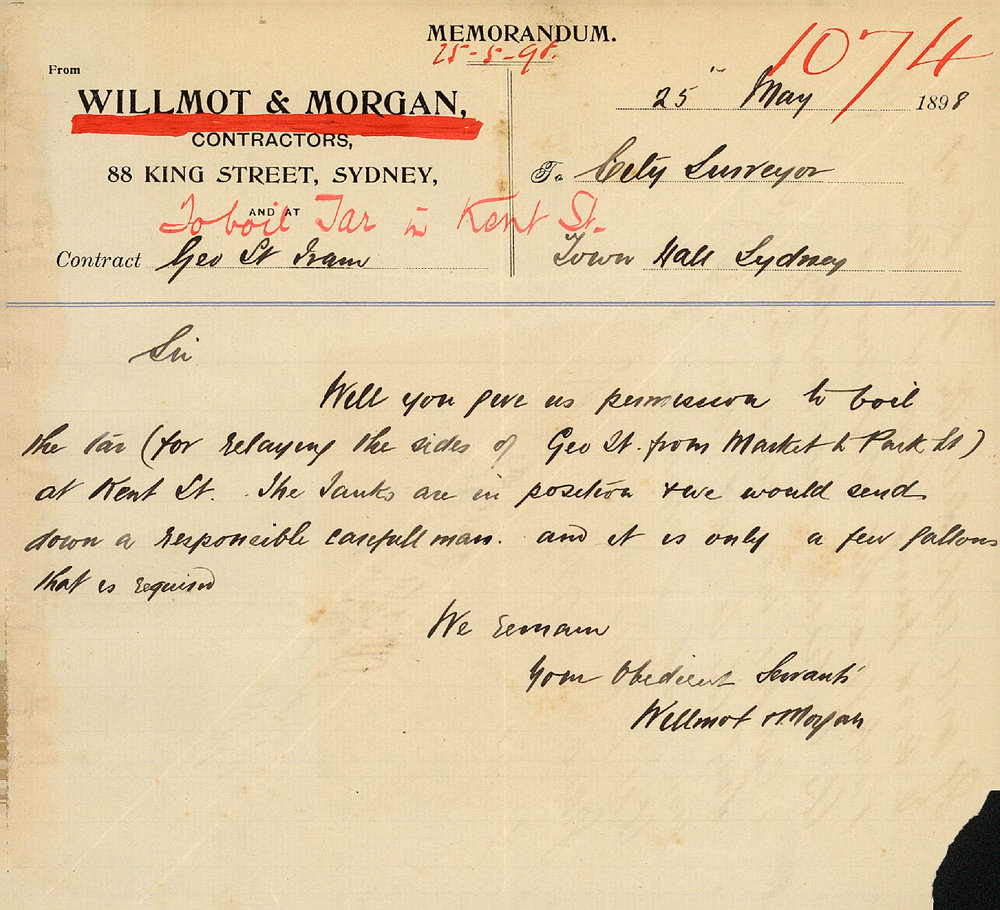 MEMORANDUM.
25-5-98.
1074
From
WILLMOT & MORGAN,
CONTRACTORS,
88 KING STREET, SYDNEY,
AND AT
To boil Tar in Kent St.
Contract Geo St Tram
25th May 1898
To City Surveyor
Town Hall Sydney
Sir
Will you give us permission to boil
the tar (for relaying the sides of Geo St. from Market to Park St)
at Kent St. The Tanks are in position & we would send
down a responcible carefull man. and it is only a few gallons
that is required
We remain
Your Obedient Servants
Willmot & Morgan